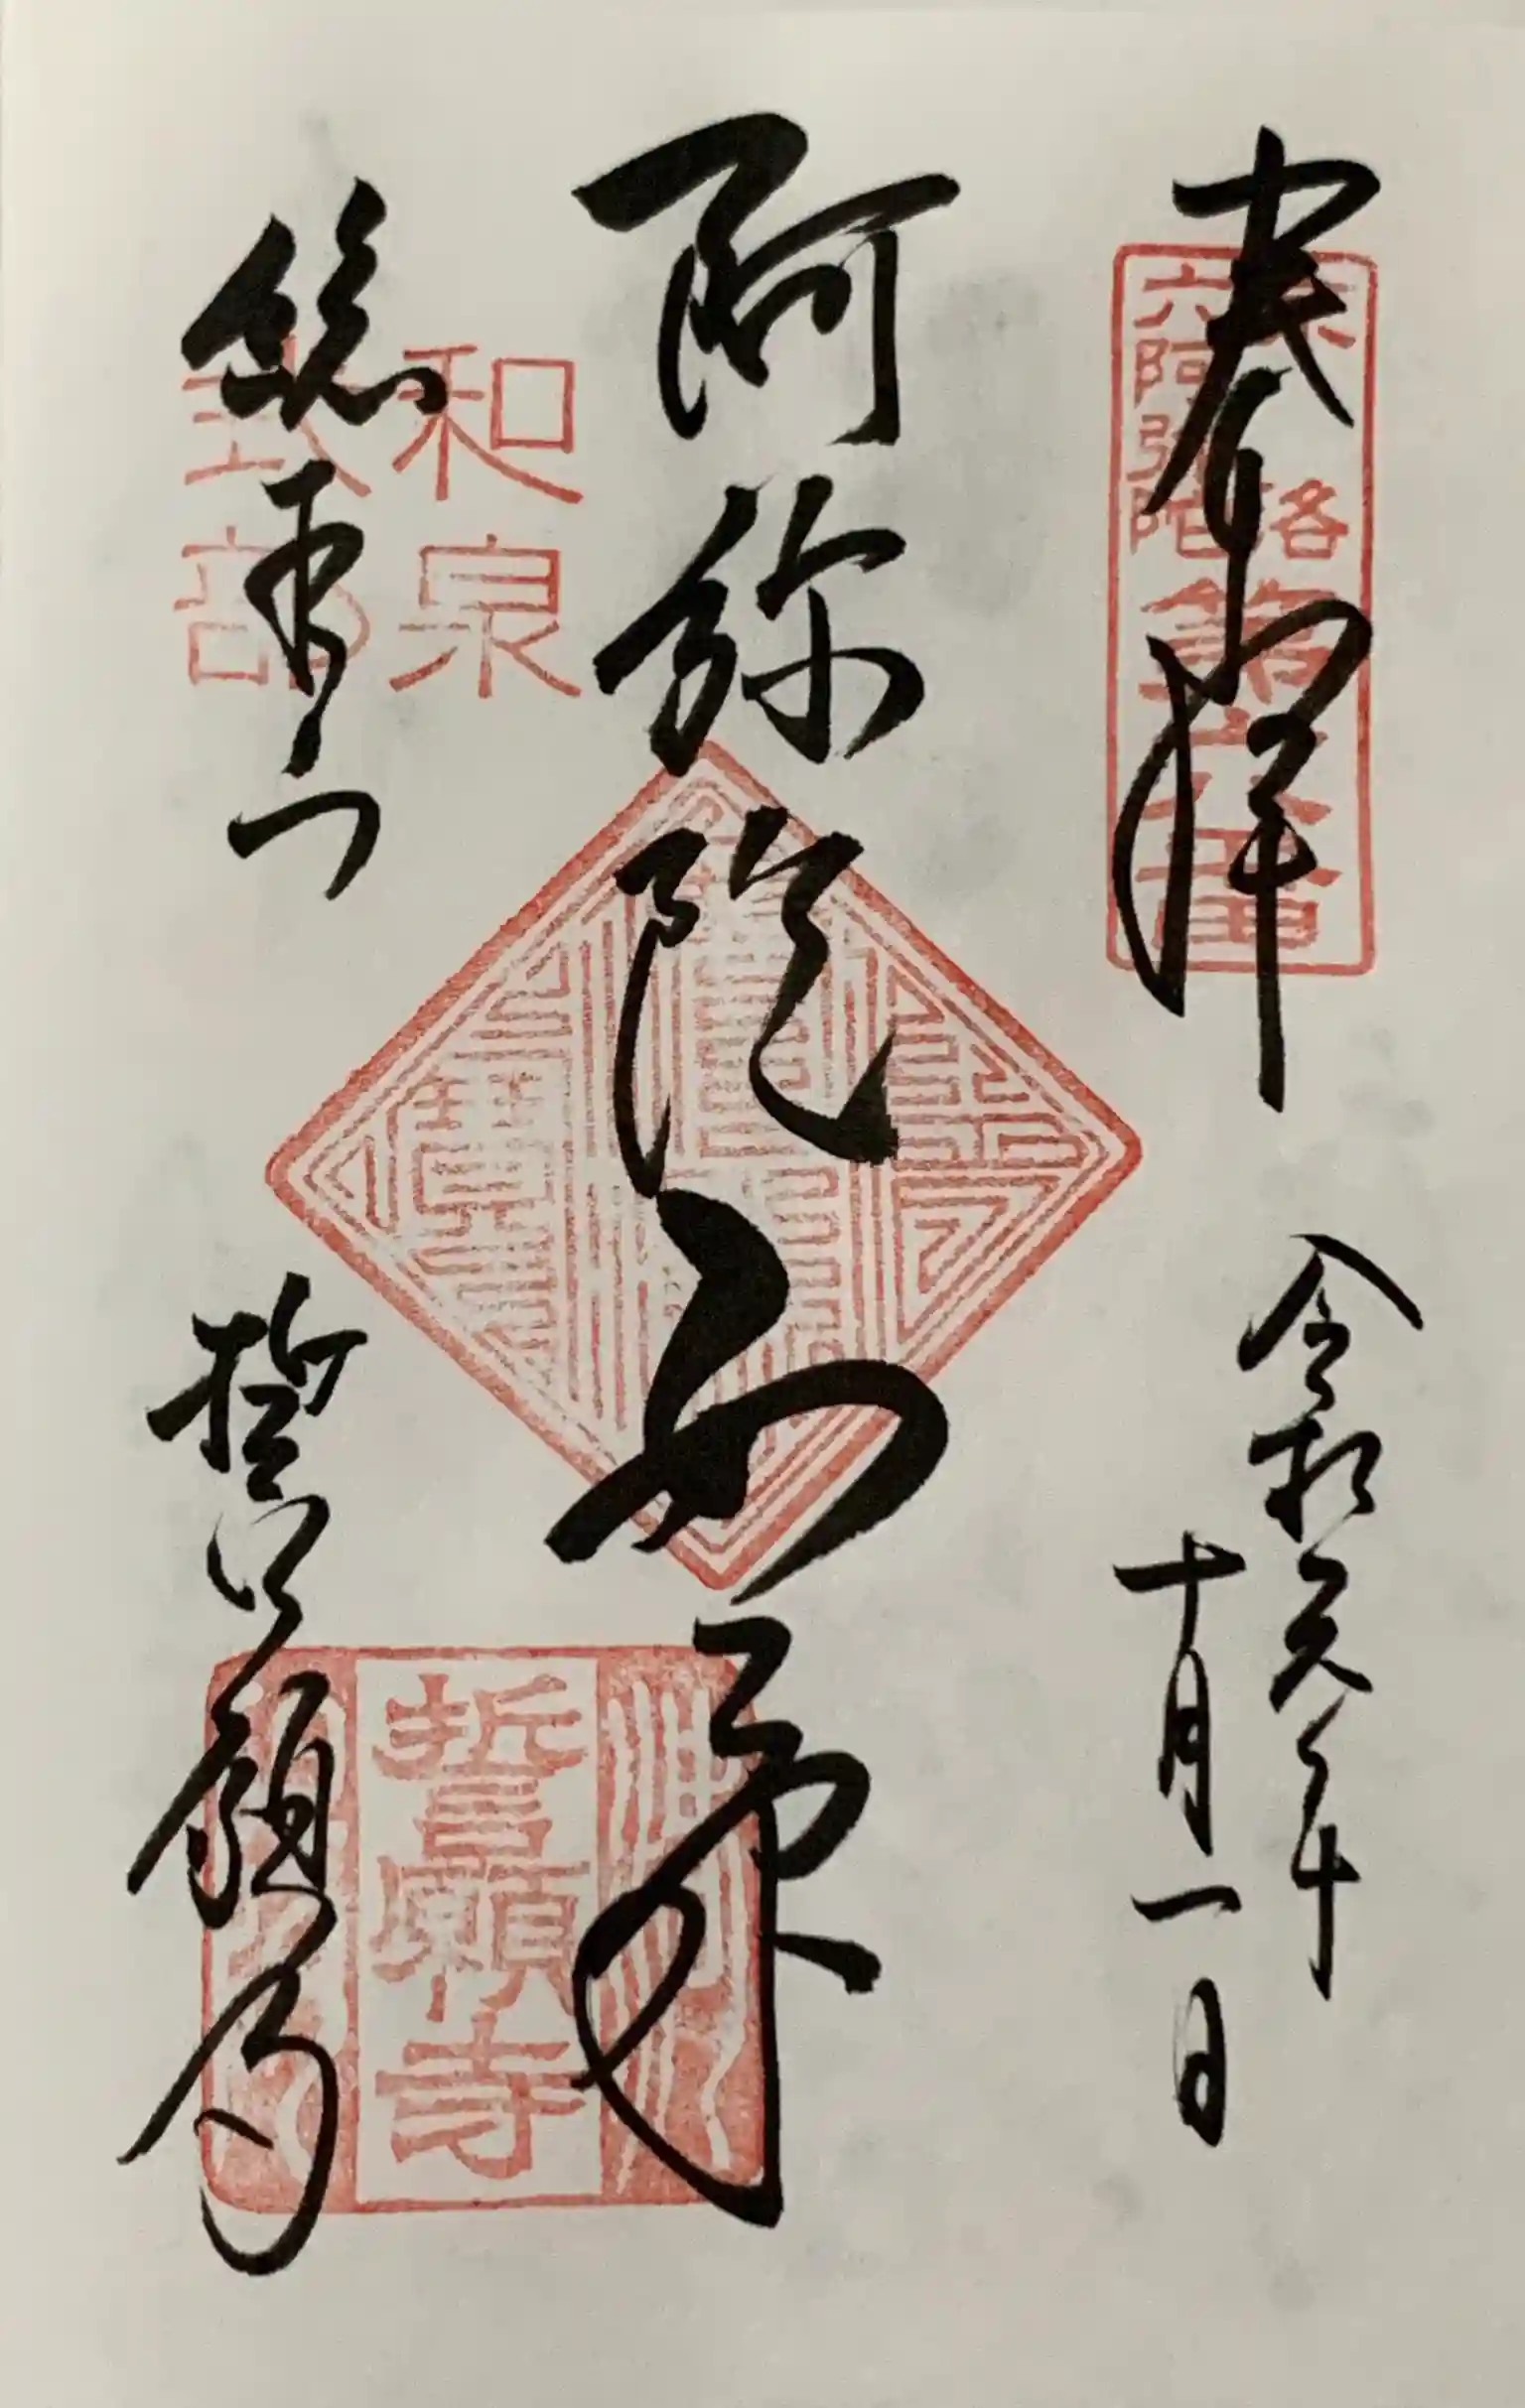 奉拝
令和元年
十月一日
阿弥陀如来
総本山
誓願寺
洛
六阿弥陀
第六番
和泉
式部
誓願寺